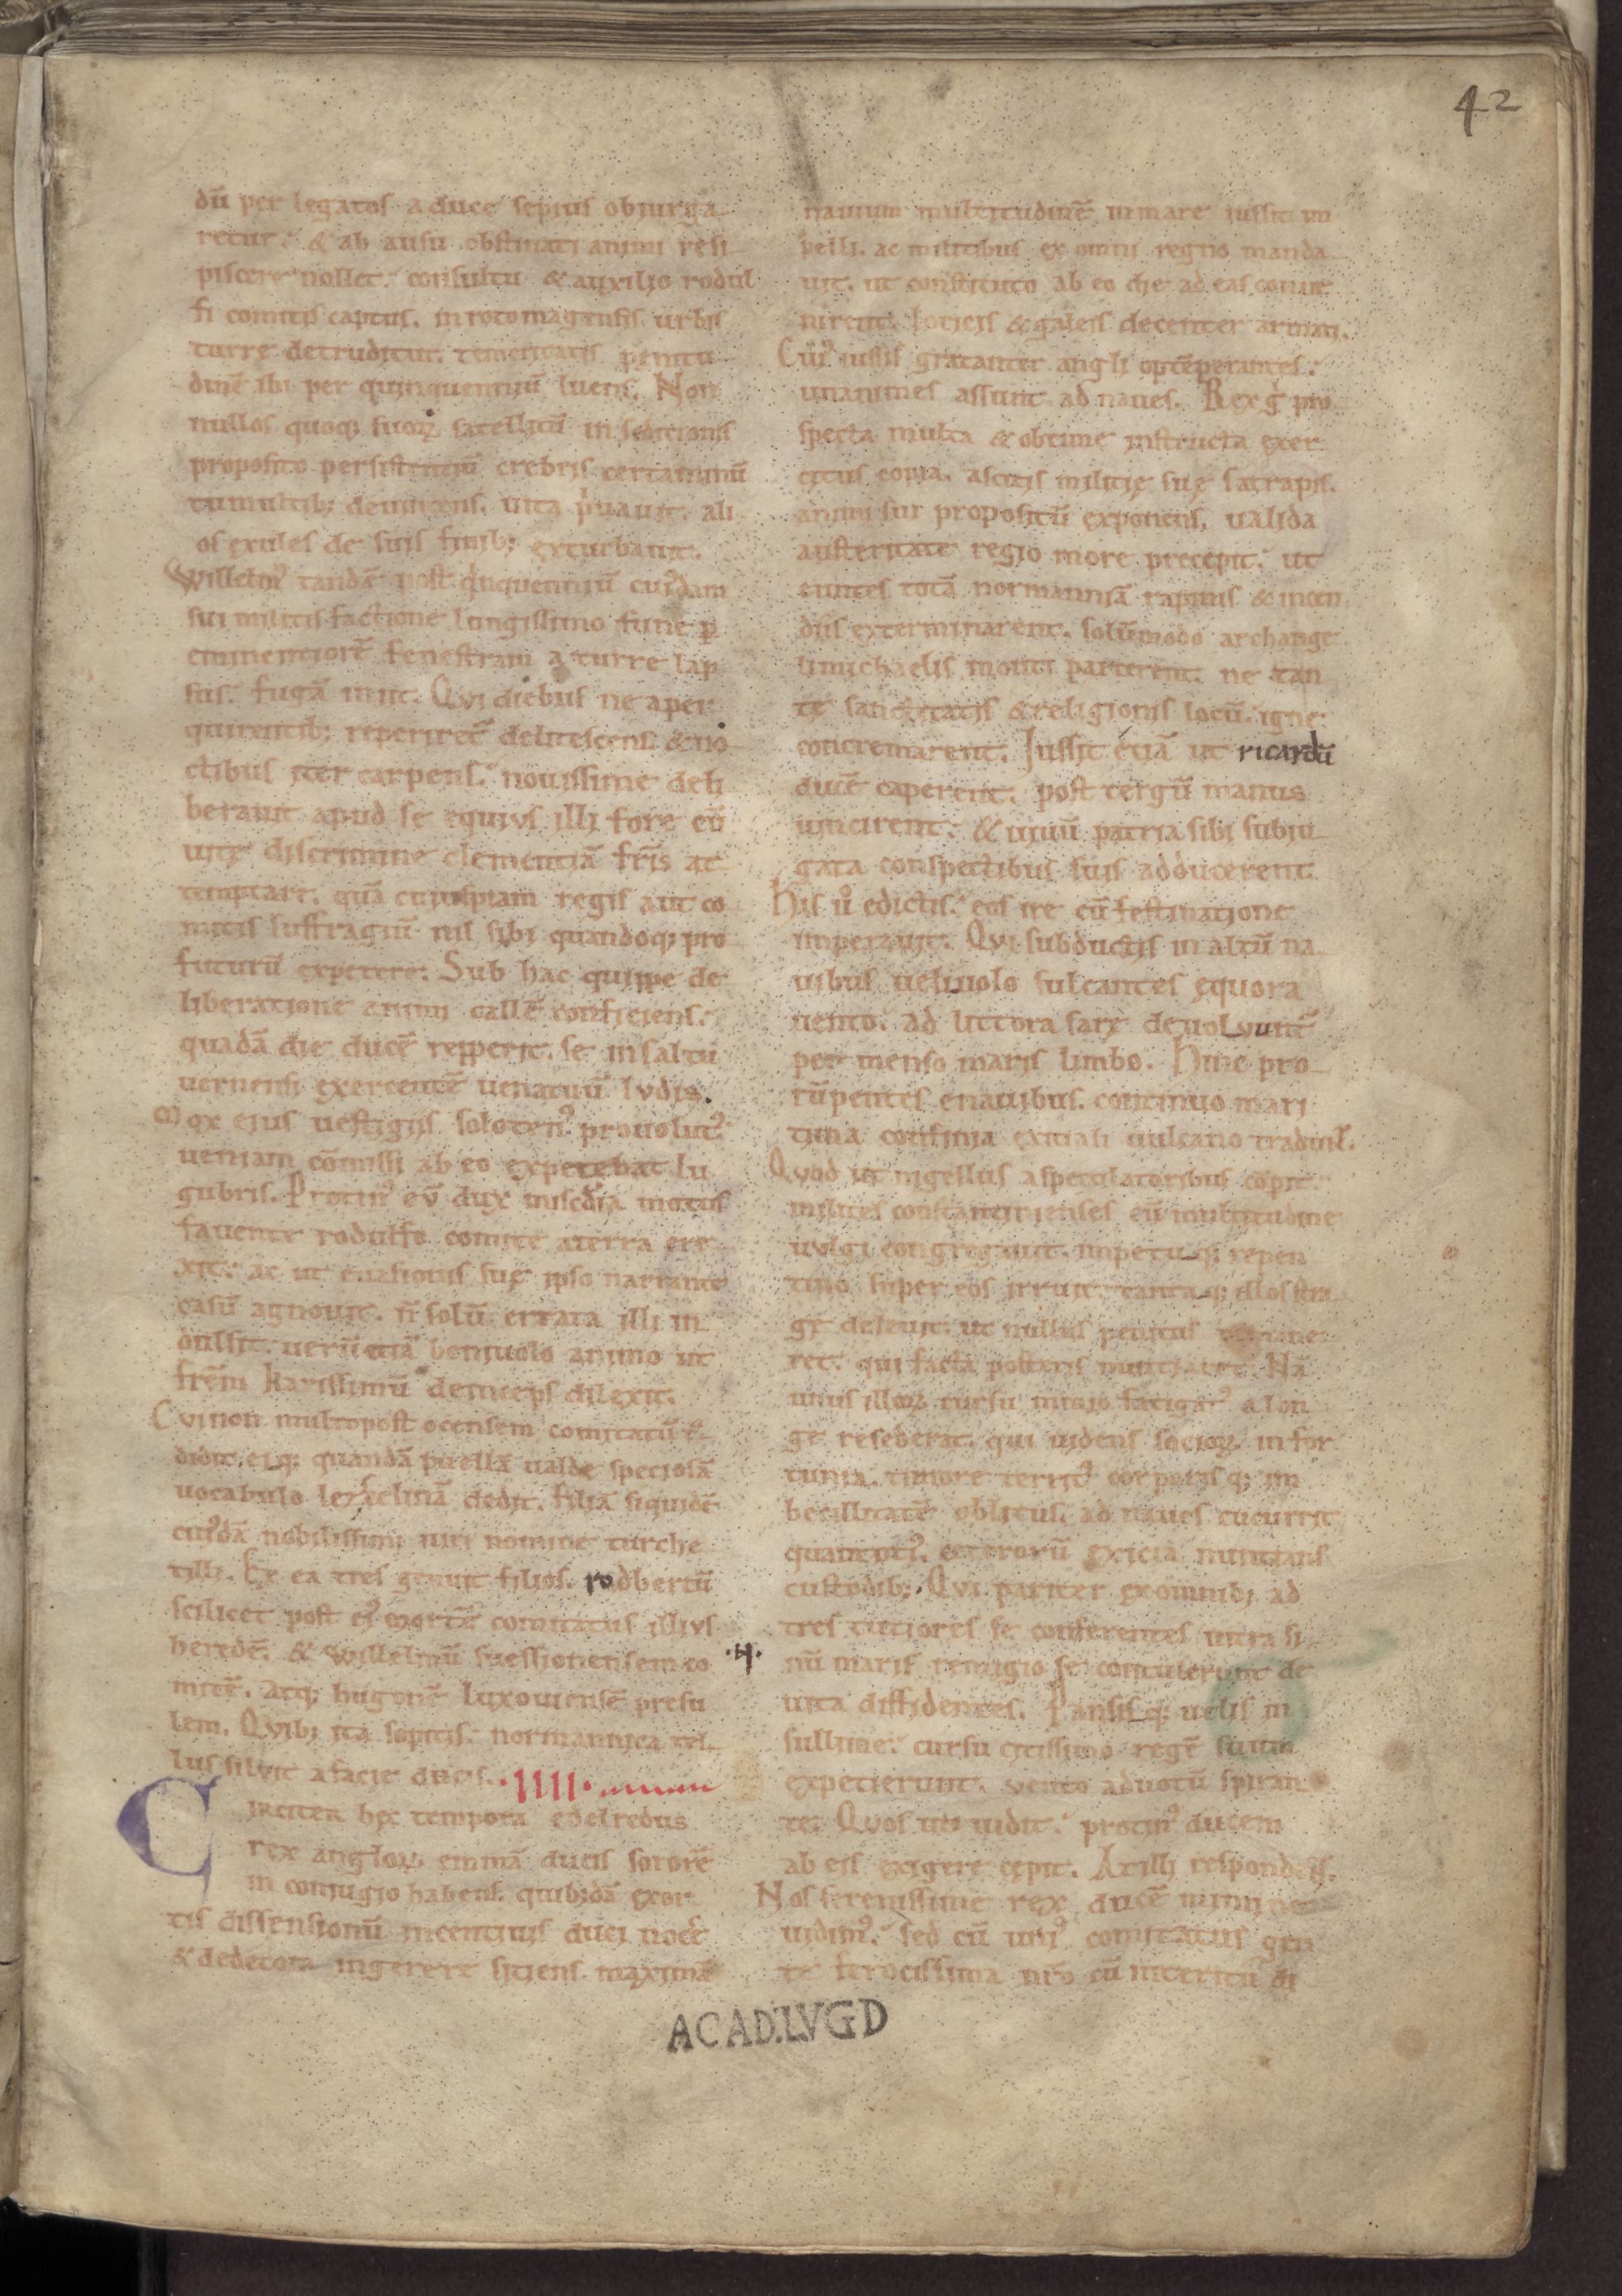 42
dū per legatos a duce sepius obiurga
retur. & ab ausu obstinati animi resi
piscere nollet. consultu & auxilio rodul
fi comitis captus. in rotomagensis urbis
turre detruditur. temeritatis penitu
dinē ibi per quinquenniū luens. Non
nullos quoq; suoꝝ satellitū in seditionis
proposito persistentiū crebris certaminū
tumultib; deuincens. uita p'uauit. ali
os exules de suis finib; exturbauit.
Willelm' tandē post q'nquenniū cui'dam
sui militis factione longissimo fune ꝑ
eminentiorē fenestram a turre lap
sus. fugā iniit. Qvi diebus ne a per
quirentib; reperiret̄ delitescens. & no
ctibus iter carpens. nouissime deli
berauit apud se equius illi fore eū
uite discrimine clementiā fr̄is at
temptare. quā cuiuspiam regis aut co
mitis suffragiū nil sibi quandoq; pro
futurū expetere. Sub hac quippe de
liberatione animi callē conficiens.
quadā die ducē repperit. se in saltu
uernensi exercentē uenatuū lvdis.
Mox eius uestigiis soloten' prouolut'
ueniam cōmissi ab eo expetebat lu
gubris. Protin' eū dux mis̄cdia motus
fauente rodulfo comite a terra ere
xit. ac ut euasionis sue ipso narrante
casū agnouit. n̄ solū errata illi in
dulsit. uerū etiā beniuolo animo ut
frēm karissimū deinceps dilexit.
Cvi non multo post ocensem comitatū
didit. eiq; quandā puellā ualde speciosā
uocabulo lezscelinā dedit. filiā siquidē
cui'dā nobilissimi uiri nomine turche
tilli. Ex ea tres genuit filios. rodbertū
scilicet post ei' mortē comitatus illivs
heredē. & willelmū suessionensem co
mitē. atq; hugonē luxouiensē presu
lem. Qvib; ita sopitis. normannica tel
lus siluit a facie ducis. .IIII.
Circiter hec tempora edelredus
rex angloꝝ emmā ducis sororē
in coniugio habens. quib;dā exor
tis dissensionū incentiuis duci nocere
& dedecora ingerere sitiens. maximā
nauium multitudinē in mare iussit im
pelli. ac militibus ex omni regno manda
uit. ut constituto ab eo die ad eas conue
nirent. loricis & galeis decenter armati.
Cui' iussis gratanter angli optēperantes.
unanimes assunt ad naues. Rex g' pro
specta multa & obtime instructa exer
citus copia. ascitis militie sue satrapis.
animi sui propositū exponens. ualida
austeritate regio more precepit. ut
euntes totā normanniā rapinis & incen
diis exterminarent. solūmodo archange
li michaelis monti parcerent. ne tan
te sanctitatis & religionis locū igne
concremarent. Iussit etiā ut ricardū
ducē caperent. post tergū manus
uincirent. & uiuū patria sibi subiu
gata conspectibus suis adducerent.
His u' edictis. eos ire cū festinatione
imperauit. Qvi subductis in altū na
uibus ueliuolo sulcantes equora
uento. ad littora sare deuolvunt̄
per menso maris limbo. Hinc pro
rūpentes e nauibus. continuo mari
tima confinia exitiali uulcano tradunt.
Qvod ut nigellus a speculatoribus cōpit.
milites constantinienses cū multitudine
uvlgi congregauit. impetu q; repen
tino super eos irruit. tanta q; illos stra
ge deleuit. ut nullus penitus remane
ret. qui facta posteris nuntiaret. Nā
unus illoꝝ cursu nimio fatigat' a lon
ge resederat. qui uidens socioꝝ infor
tunia. timore territ' corporis q; im
becillitatē oblitus. ad naues cucurrit
quantoti'. ceterorū exicia nuntians
custodib;. Qvi pariter ex omnib; ad
tres tutiores se conferentes intra si
.H.
nū maris remigio se contulerunt de
uita diffidentes. Pansis q; uelis in
sullime. cursu citissimo regē suum
expetierunt. uento ad uotū spiran
te. Qvos ut uidit. protin' ducem
ab eis exigere cepit. At illi respondēs.
Nos serenissime rex ducē minime
uidim'. sed cū uni' comitatus gen
te ferocissima nr̄o cū interitu di
ACAD.LVGD